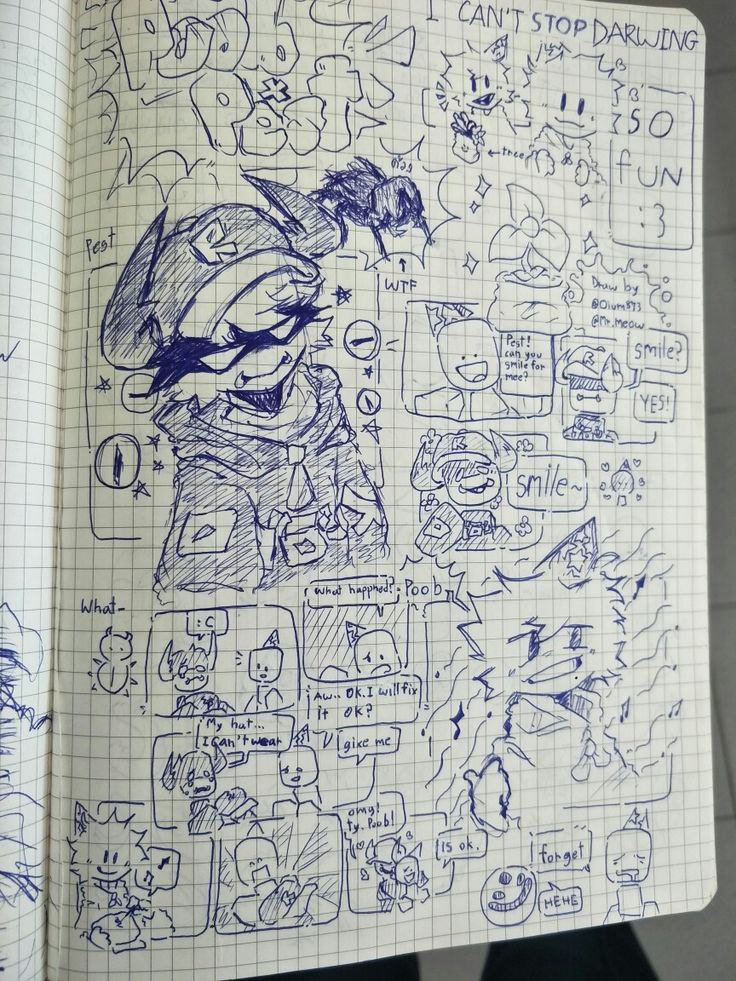 I CAN'T STOP DARWING
SO
fUN
:3
←tree
Pest
WTF
Draw by
@Oium873
@Mr.meow
Pest!
can you
smile for
mee?
smile?
YES!
smile~
What-
:C
What happhed?
Poob
Aw.. OK.I will fix
it OK?
My hat...
I can't wear
give me
omg!
ty, Poob!
IS OK.
I forget
HEHE